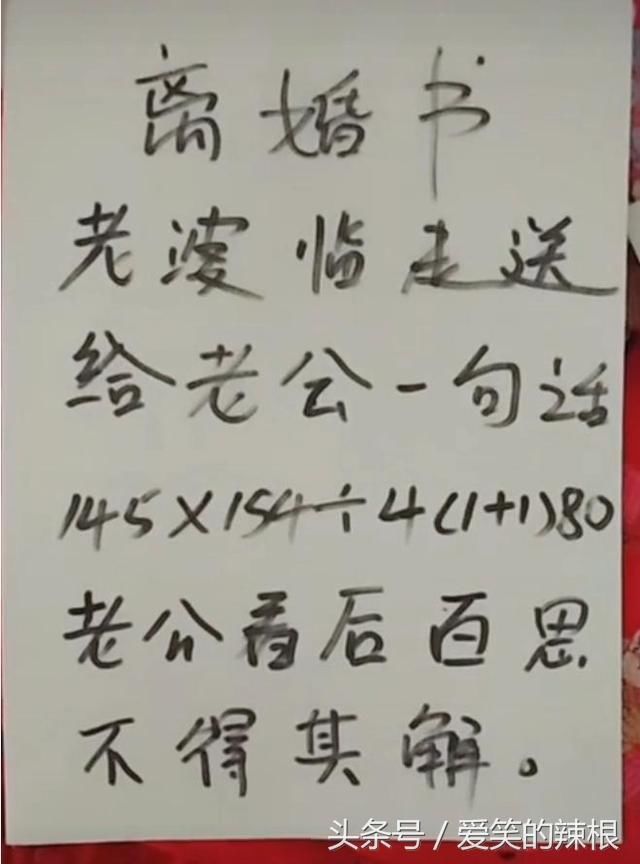 离婚书
老婆临走送
给老公一句话
145×154÷4(1+1)80
老公看后百思
不得其解。
头条号 / 爱笑的辣根